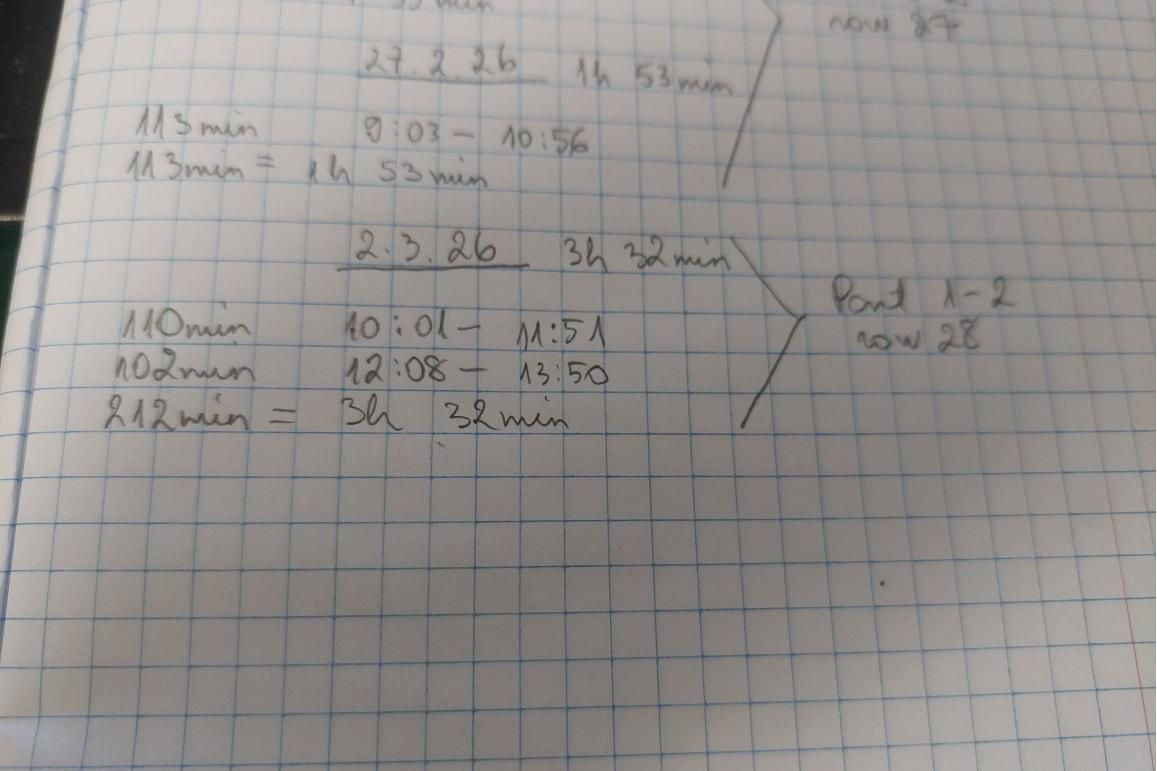 53 min
row 27
27.2.26 1h 53min
113min 9:03 - 10:56
113min = 1h 53min
2.3.26 3h 32min
Part 1-2
row 28
110min 10:01 - 11:51
102min 12:08 - 13:50
212min = 3h 32min